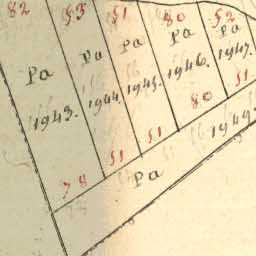 82 53 51 80 52
Pa Pa Pa Pa Pa
1943. 1944. 1945. 1946. 1947.
78 51 51 80 51
Pa 1949.